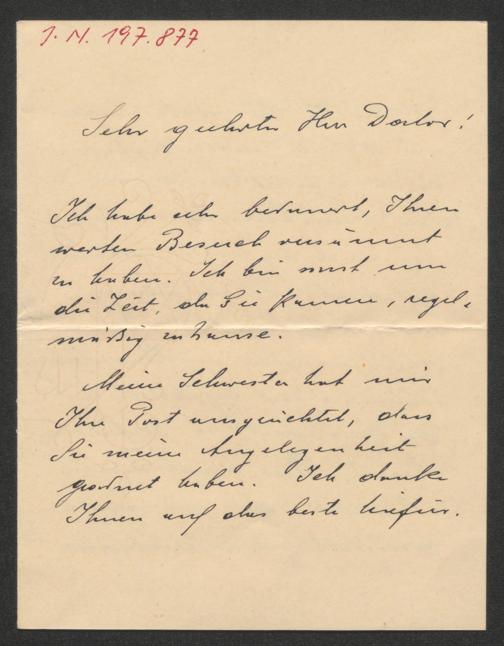 J. N. 197.877
Sehr geehrter Herr Doctor!
Ich habe sehr bedauert, Ihren
werten Besuch versäumt
zu haben. Ich bin sonst um
die Zeit, da Sie kamen, regel-
mäßig zuhause.
Meine Schwester hat mir
Ihre Post ausgerichtet, dass
Sie meine Angelegenheit
geordnet haben. Ich danke
Ihnen auf das beste hiefür.